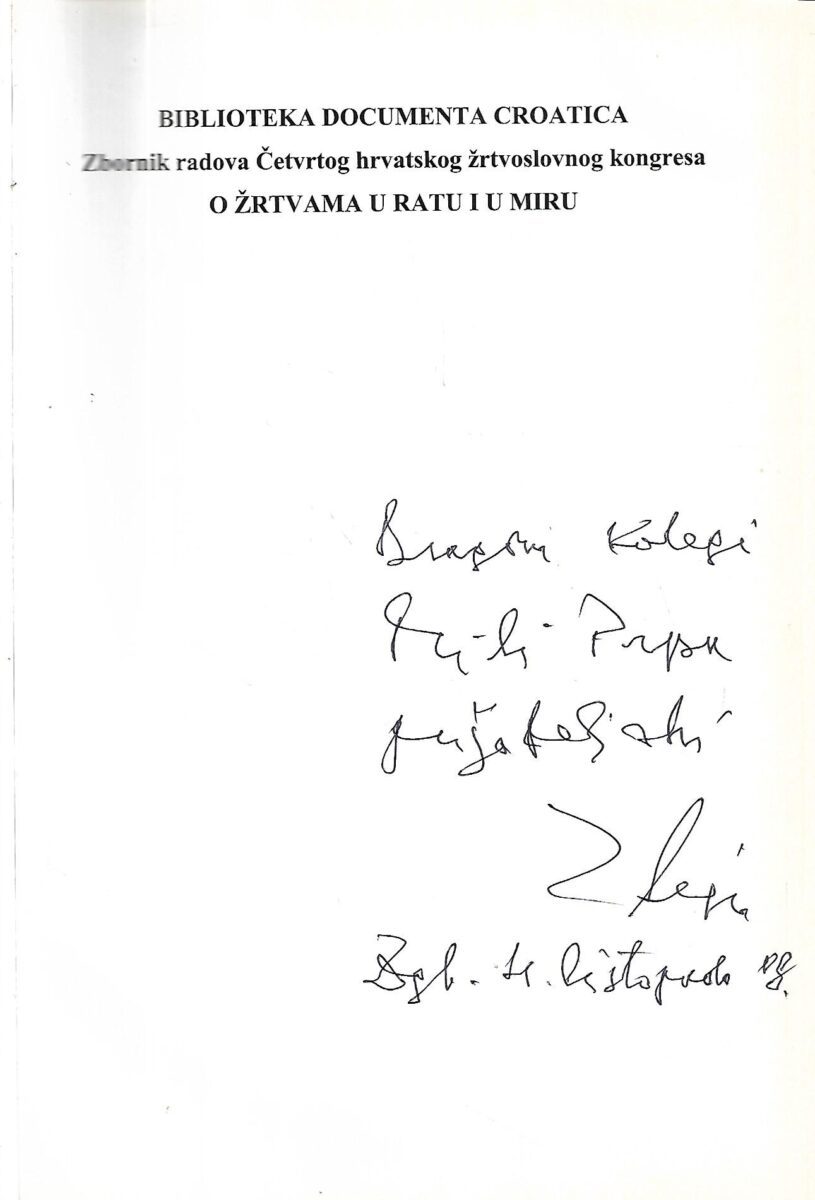 BIBLIOTEKA DOCUMENTA CROATICA
Zbornik radova Četvrtog hrvatskog žrtvoslovnog kongresa
O ŽRTVAMA U RATU I U MIRU
Dragom kolegi
Prpu
prijateljski
Zgb. listopad 08.